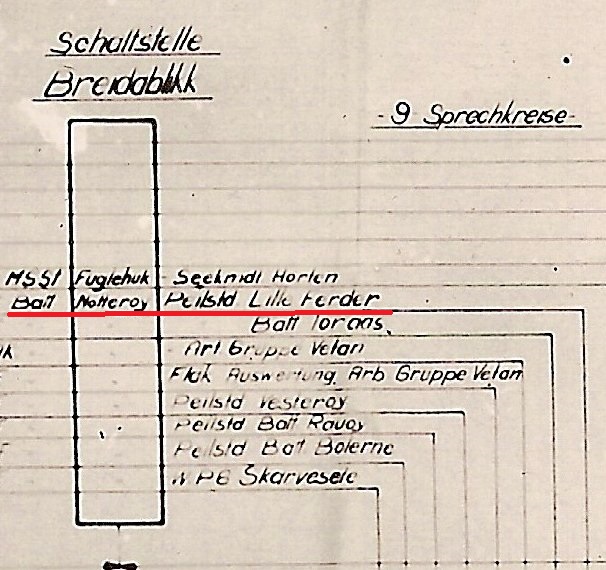 Schaltstelle
Breidablikk
- 9 Sprechkreise -
MSSt Fuglehuk - Seekmdt Horten
Batt Notteroy Peilstd Lille Ferder
Batt Toraas
- Art Gruppe Velan
Flak Auswertung Arb Gruppe Velan
Peilstd Vesteroy
Peilstd Batt Rauoy
Peilstd Batt Bolerne
Skarvesete